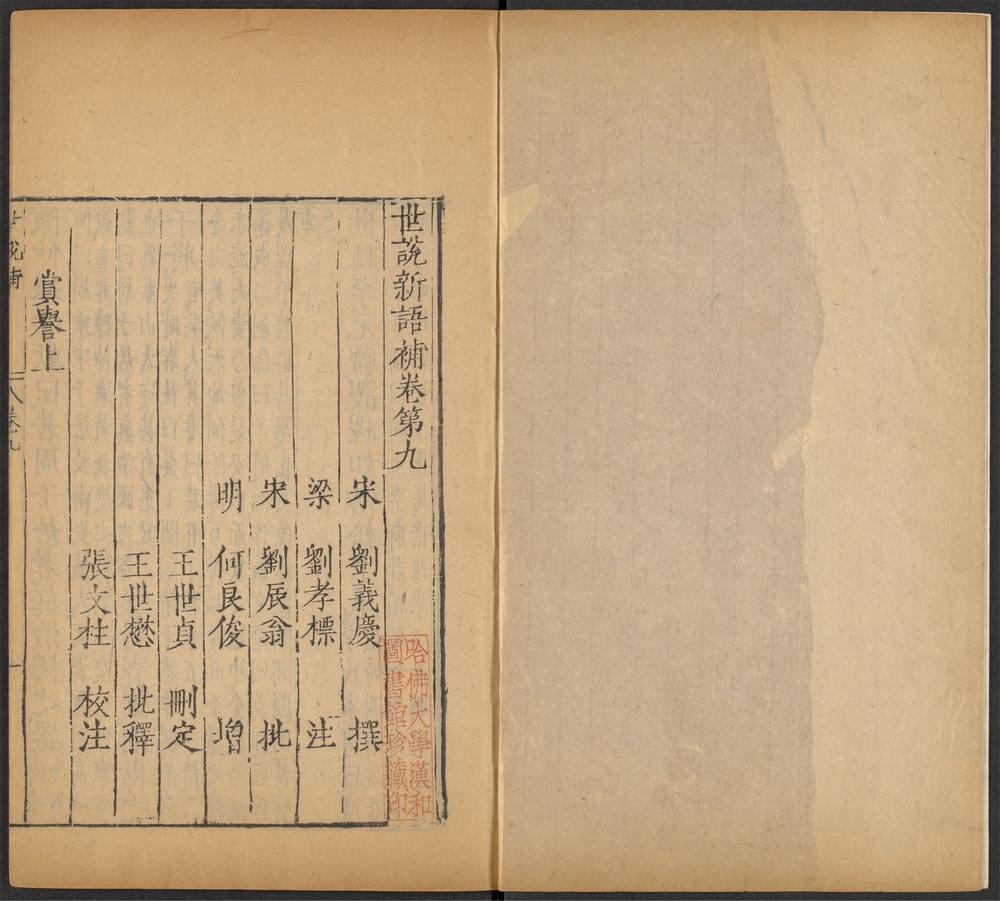 世說新語補卷第九
宋 劉義慶 撰
梁 劉孝標 注
宋 劉辰翁 批
明 何良俊 增
王世貞 刪定
王世懋 批釋
張文柱 校注
賞譽上
世說補 卷九 一
哈佛大學漢和
圖書館珍藏印